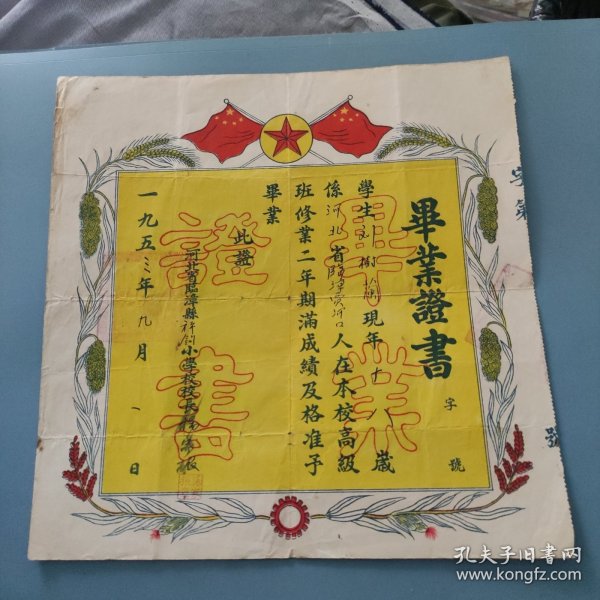 畢業證書
字
號
學生劉樹
現年十八歲
係河北省臨漳縣
人在本校高級
班修業二年期滿成績及格准予
畢業
此證
河北省臨漳縣
小學校校長
一九五三年九月一日
畢業
證書
字第
號
孔夫子旧书网
www.kongfz.com